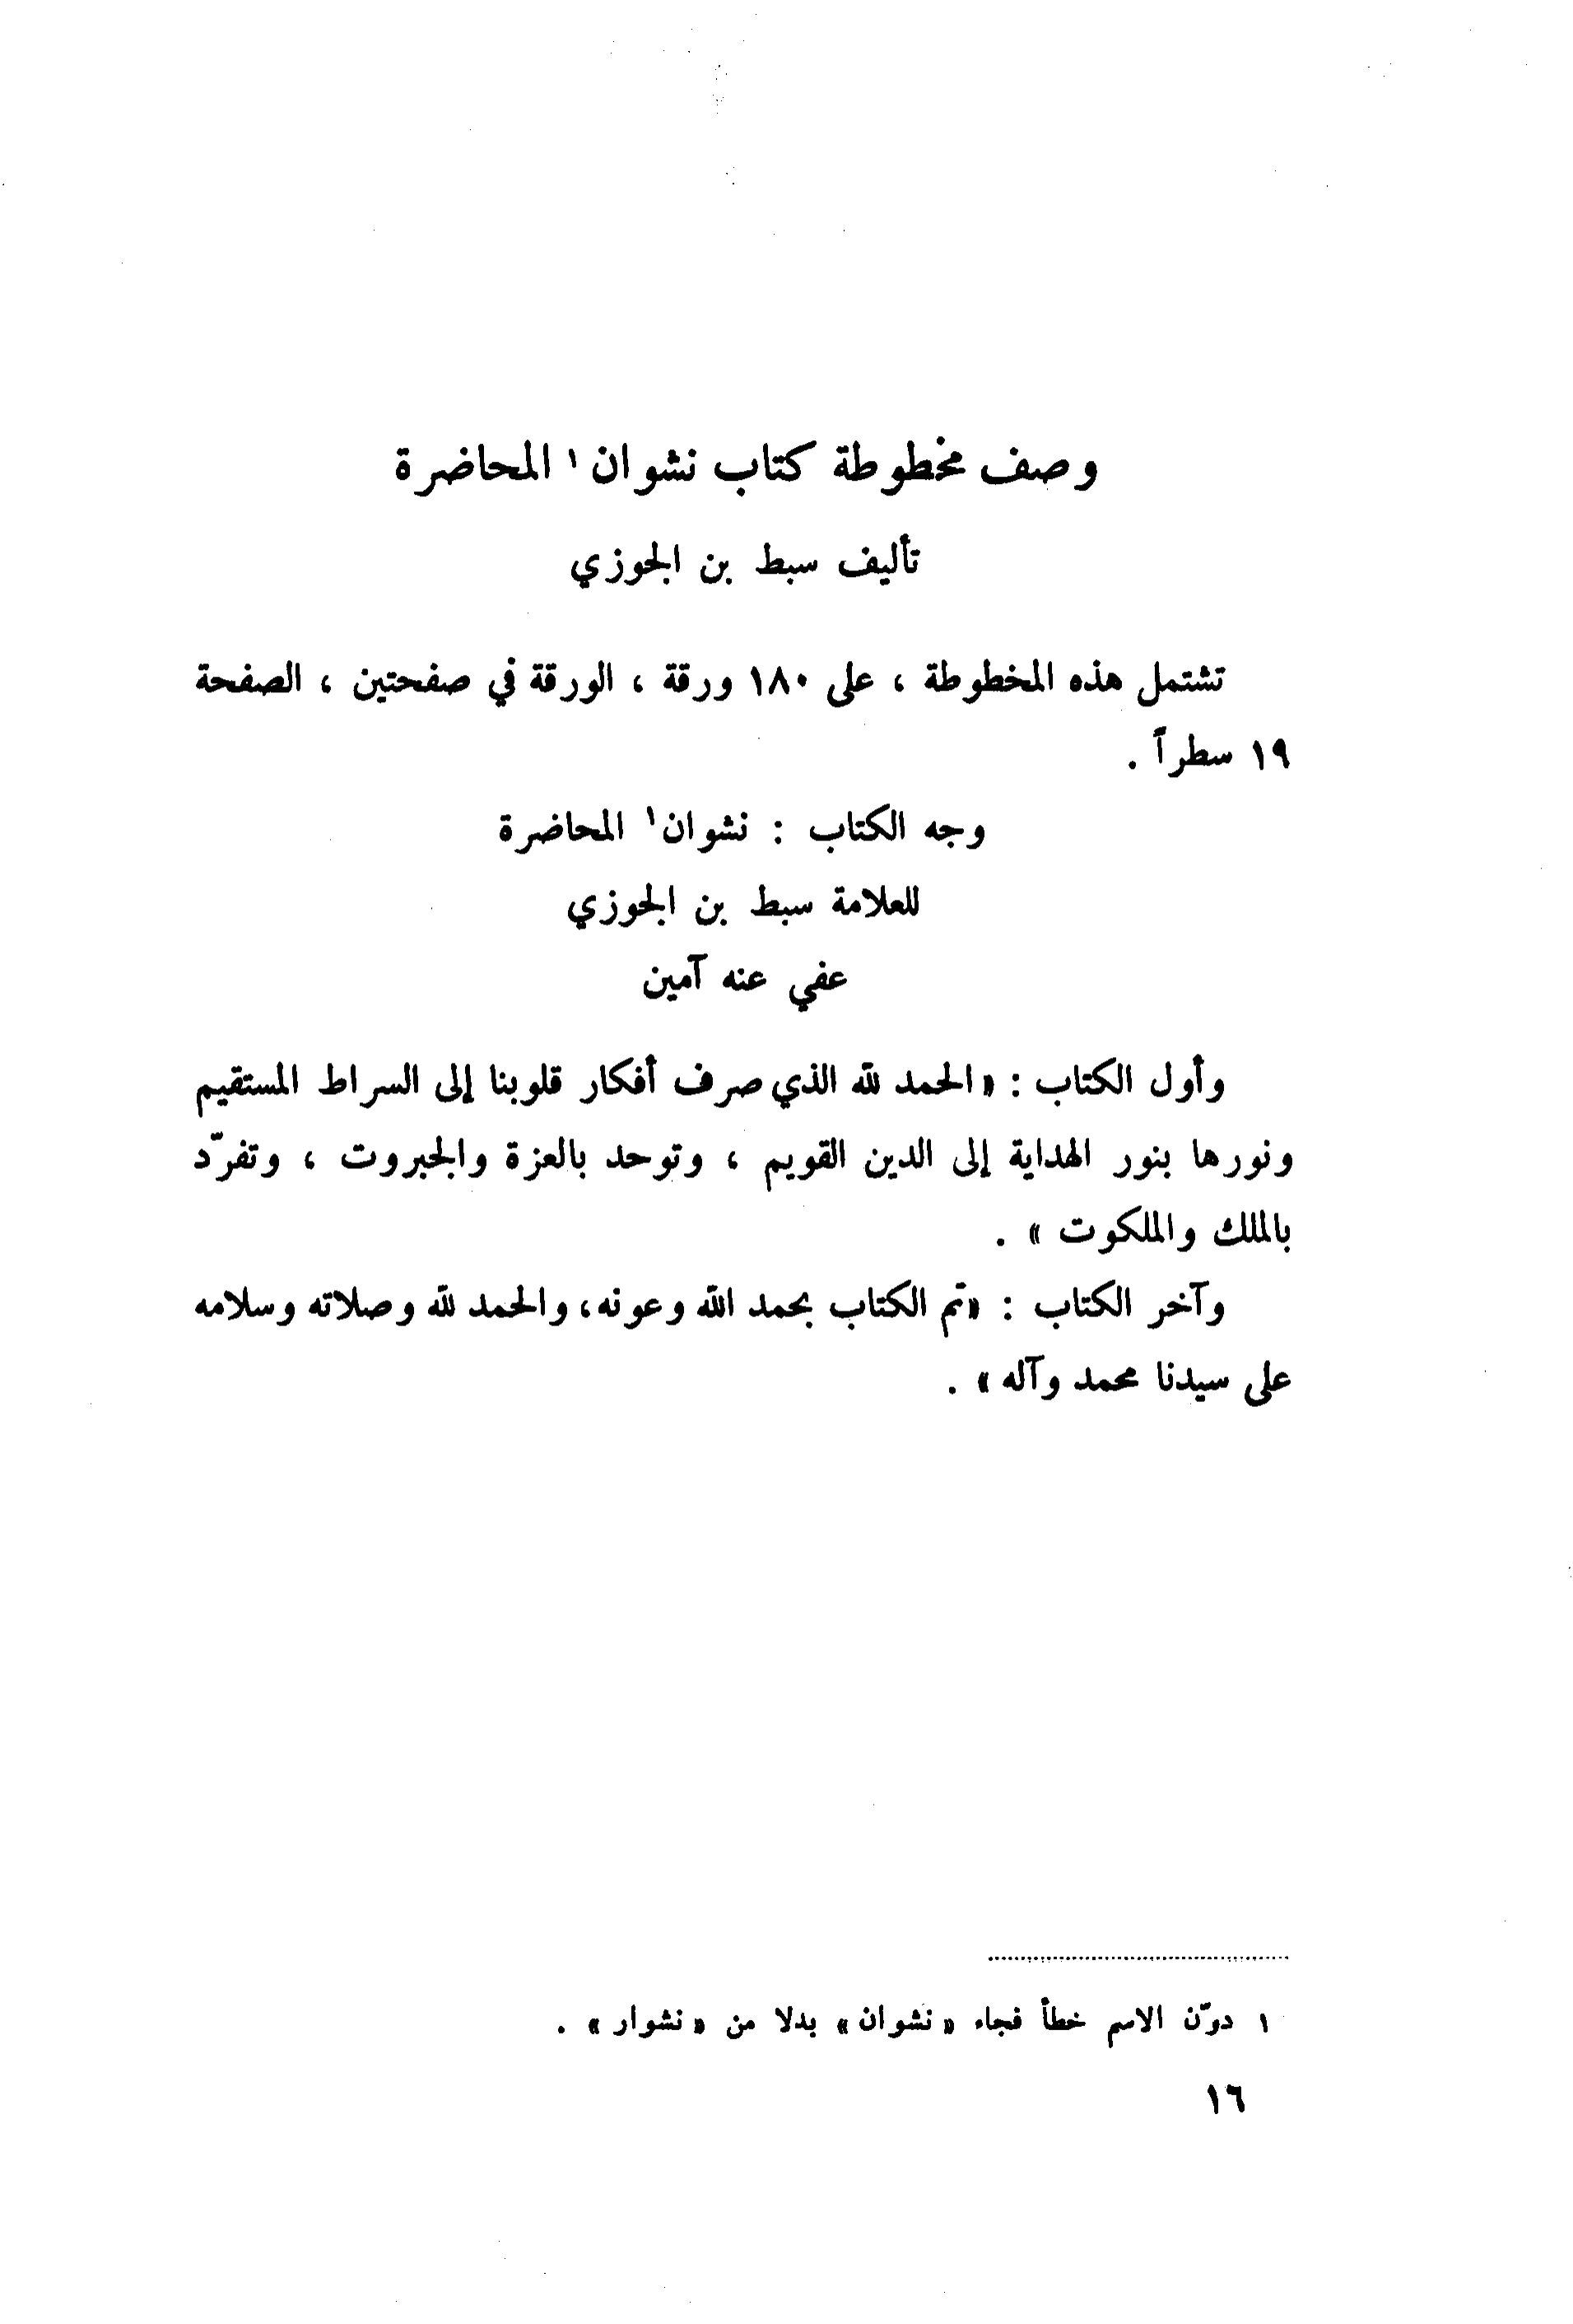 وصف مخطوطة كتاب نشوان ١ المحاضرة
تأليف سبط بن الجوزي
تشتمل هذه المخطوطة ، على ١٨٠ ورقة ، الورقة في صفحتين ، الصفحة
١٩ سطراً .
وجه الكتاب : نشوان١ المحاضرة
للعلامة سبط بن الجوزي
عفي عنه آمين
وأول الكتاب : « الحمد لله الذي صرف أفكار قلوبنا إلى السراط المستقيم
ونورها بنور الهداية إلى الدين القويم ، وتوحد بالعزة والجبروت ، وتفرّد
بالملك والملكوت » .
وآخر الكتاب : «تم الكتاب بحمد الله وعونه، والحمد لله وصلاته وسلامه
على سيدنا محمد وآله » .
١ دوّن الاسم خطأ فجاء « نشوان » بدلا من « نشوار » .
١٦